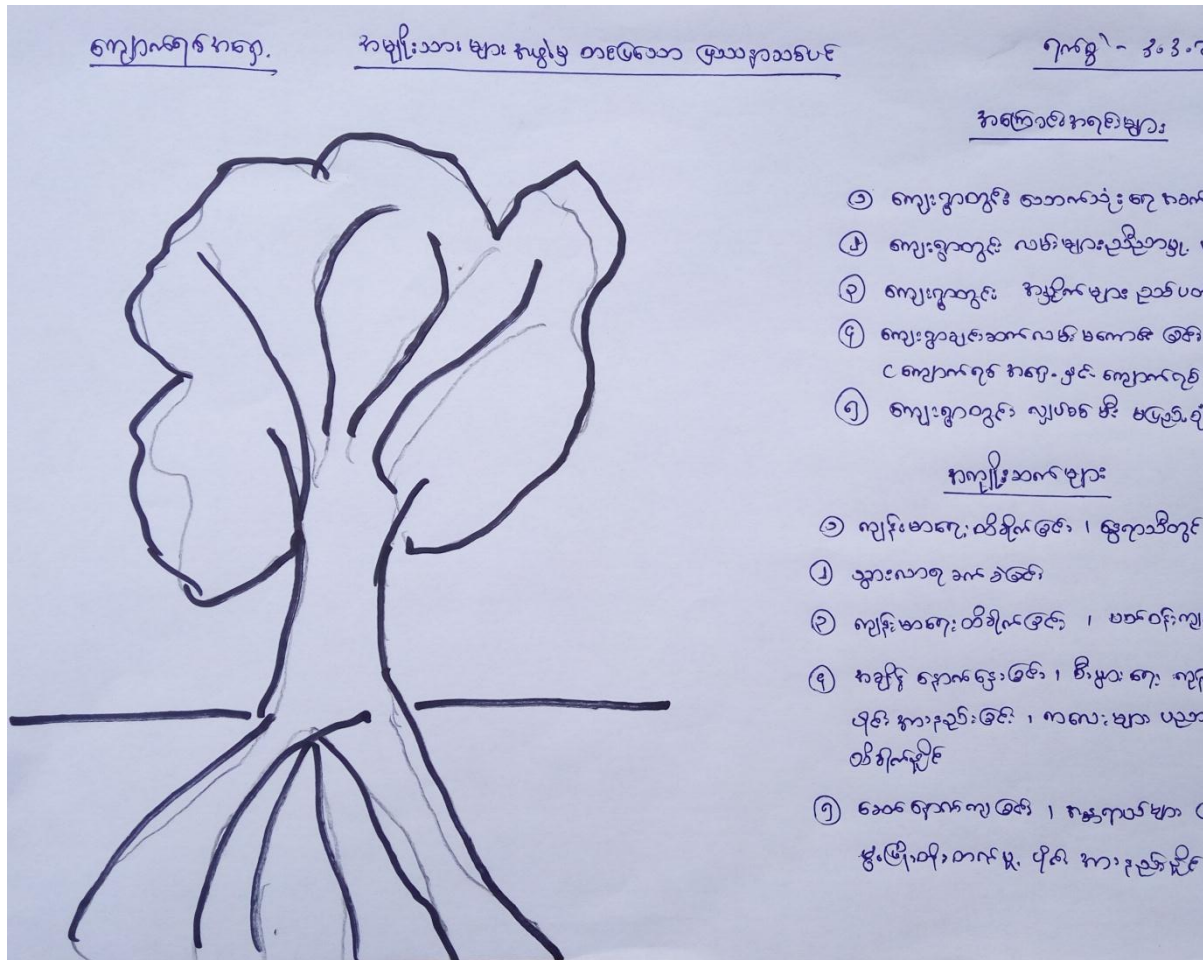 ကျောက်ရစ်အရှေ့ အမျိုးသားများ အဖွဲ့မှ တင်ပြသော ပြဿနာသစ်ပင် ရက်စွဲ - ၃၀.၃.၂
အကြောင်းအရင်းများ
၁ ကျေးရွာတွင်း သောက်သုံးရေ အခက်
၂ ကျေးရွာတွင်း လမ်းများညစ်ညာမှု
၃ ကျေးရွာတွင်း အမှိုက်များ ညစ်ပတ
၄ ကျေးရွာချင်းဆက်လမ်း မကောင်း ခြင်း
( ကျောက်ရစ် အရှေ့ နှင့် ကျောက်ရစ်
၅ ကျေးရွာတွင်း လျှပ်စစ် မီး မပြည့်စုံ
အကျိုးဆက်များ
၁ ကျန်းမာရေး ထိခိုက်ခြင်း ၊ နွေရာသီတွင်
၂ သွားလာရ ခက်ခဲခြင်း
၃ ကျန်းမာရေး ထိခိုက်ခြင်း ၊ ပတ်ဝန်းကျ
၄ အချိန် နှောင့်နှေးခြင်း ၊ စီးပွားရေး
ပိုင်း အားနည်းခြင်း ၊ ကလေးများ ပညာ
ထိခိုက်နိုင်
၅ ခေတ်နောက်ကျခြင်း ၊ အန္တရာယ်များ
ဖွံ့ဖြိုးတိုးတက်မှု ပိုင်း အားနည်းနိုင်